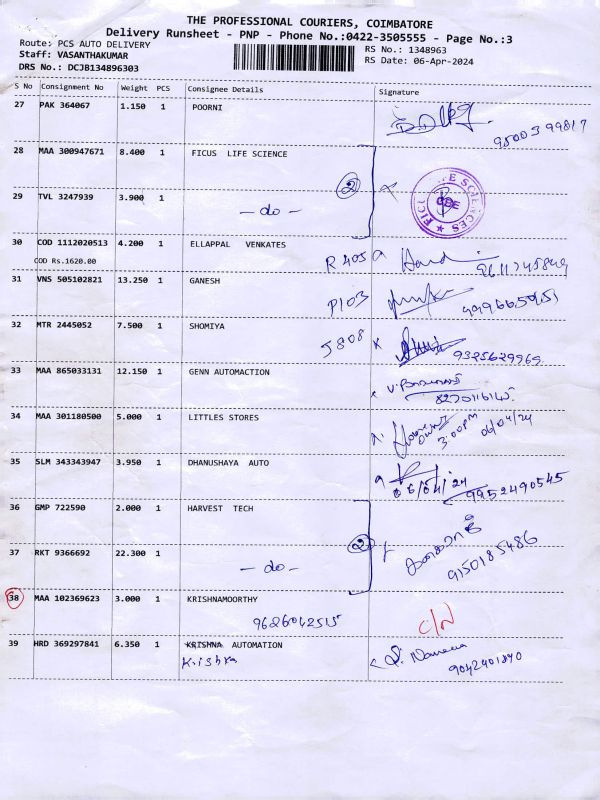 THE PROFESSIONAL COURIERS, COIMBATORE
Delivery Runsheet - PNP - Phone No.:0422-3505555 - Page No.:3
Route: PCS AUTO DELIVERY RS No.: 1348963
Staff: VASANTHAKUMAR RS Date: 06-Apr-2024
DRS No.: DCJB134896303
S No Consignment No Weight PCS Consignee Details Signature
27 PAK 364067 1.150 1 POORNI
9500399817
28 MAA 300947671 8.400 1 FICUS LIFE SCIENCE
29 TVL 3247939 3.900 1
- do - 2
30 COD 1112020513 4.200 1 ELLAPPAL VENKATES
COD Rs.1620.00 R405
31 VNS 505102821 13.250 1 GANESH
P103
32 MTR 2445052 7.500 1 SHOMIYA
5808 9325629969
33 MAA 865033131 12.150 1 GENN AUTOMACTION
34 MAA 301180500 5.000 1 LITTLES STORES
3.00pm 06/04/24
35 SLM 343343947 3.950 1 DHANUSHAYA AUTO
06/04/24 9952490545
36 GMP 722590 2.000 1 HARVEST TECH
37 RKT 9366692 22.300 1
- do - 2
9150185486
38 MAA 102369623 3.000 1 KRISHNAMOORTHY
9626042515 C/N
39 HRD 369297841 6.350 1 KRISHNA AUTOMATION
9042401840